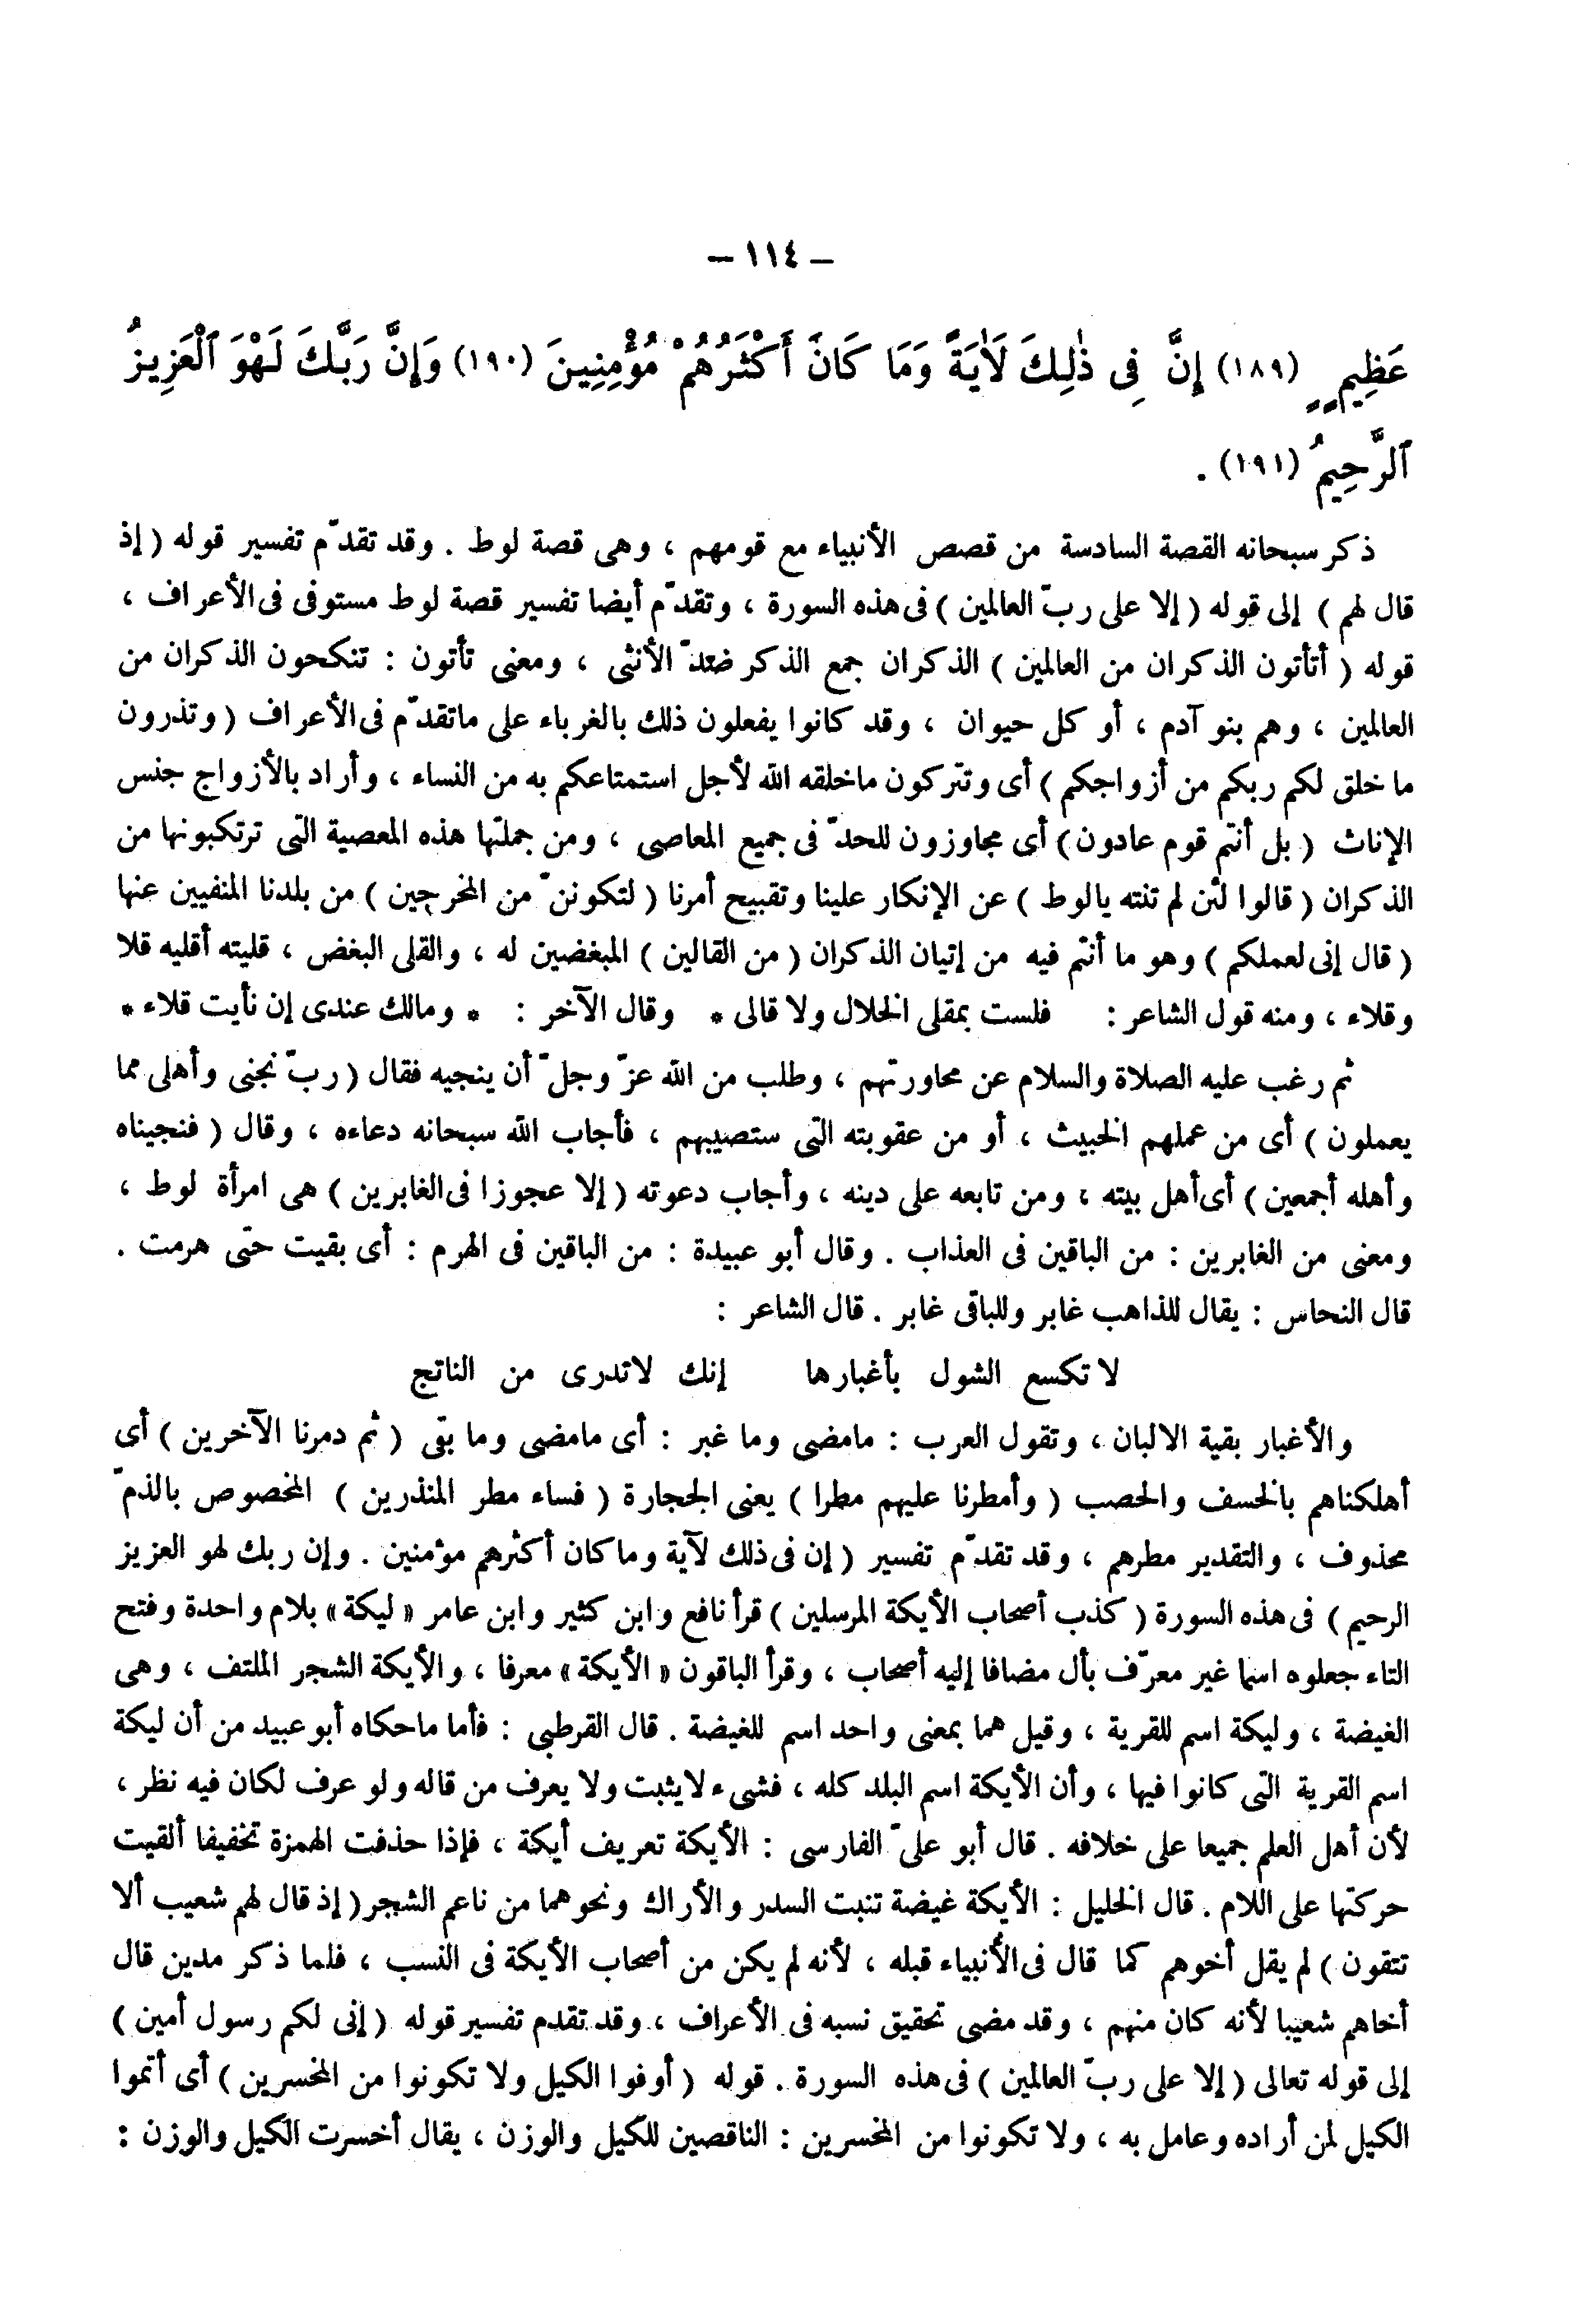 – ١١٤ –
عَظِيمٍ (١٨٩) إِنَّ فِى ذٰلِكَ لَاٰيَةً وَمَا كَانَ أَكْثَرُهُمْ مُؤْمِنِينَ (١٩٠) وَإِنَّ رَبَّكَ لَهْوَ ٱلْعَزِيزُ
ٱلرَّحِيمُ (١٩١) .
ذكر سبحانه القصة السادسة من قصص الأنبياء مع قومهم ، وهى قصة لوط . وقد تقدّم تفسير قوله ( إذ
قال لهم ) إلى قوله ( إلا على ربّ العالمين ) فى هذه السورة ، وتقدّم أيضا تفسير قصة لوط مستوفى فى الأعراف ،
قوله ( أتأتون الذكران من العالمين ) الذكران جمع الذكر ضدّ الأنثى ، ومعنى تأتون : تنكحون الذكران من
العالمين ، وهم بنو آدم ، أو كل حيوان ، وقد كانوا يفعلون ذلك بالغرباء على ماتقدّم فى الأعراف ( وتذرون
ما خلق لكم ربكم من أزواجكم ) أى وتتركون ماخلقه الله لأجل استمتاعكم به من النساء ، وأراد بالأزواج جنس
الإناث ( بل أنتم قوم عادون ) أى مجاوزون للحدّ فى جميع المعاصى ، ومن جملتها هذه المعصية التى ترتكبونها من
الذكران ( قالوا لئن لم تنته يالوط ) عن الإنكار علينا وتقبيح أمرنا ( لتكوننّ من المخرجين ) من بلدنا المنفيين عنها
( قال إنى لعملكم ) وهو ما أنتم فيه من إتيان الذكران ( من القالين ) المبغضين له ، والقلى البغض ، قليته أقليه قلا
وقلاء ، ومنه قول الشاعر : فلست بمقلى الخلال ولا قالى * وقال الآخر : * ومالك عندى إن نأيت قلاء *
ثم رغب عليه الصلاة والسلام عن محاورتهم ، وطلب من الله عزّ وجلّ أن ينجيه فقال ( ربّ نجنى وأهلى مما
يعملون ) أى من عملهم الخبيث ، أو من عقوبته التى ستصيبهم ، فأجاب الله سبحانه دعاءه ، وقال ( فنجيناه
وأهله أجمعين ) أى أهل بيته ، ومن تابعه على دينه ، وأجاب دعوته ( إلا عجوزا فى الغابرين ) هى امرأة لوط ،
ومعنى من الغابرين : من الباقين فى العذاب . وقال أبو عبيدة : من الباقين فى الهرم : أى بقيت حتى هرمت .
قال النحاس : يقال للذاهب غابر وللباقى غابر . قال الشاعر :
لا تكسع الشول بأغبارها إنك لاتدرى من الناتج
والأغبار بقية الالبان ، وتقول العرب : مامضى وما غبر : أى مامضى وما بقى ( ثم دمرنا الآخرين ) أى
أهلكناهم بالخسف والحصب ( وأمطرنا عليهم مطرا ) يعنى الحجارة ( فساء مطر المنذرين ) المخصوص بالذمّ
محذوف ، والتقدير مطرهم ، وقد تقدّم تفسير ( إن فى ذلك لآية وما كان أكثرهم مؤمنين . وإن ربك لهو العزيز
الرحيم ) فى هذه السورة ( كذب أصحاب الأيكة المرسلين ) قرأ نافع وابن كثير وابن عامر « ليكة » بلام واحدة وفتح
التاء جعلوه اسما غير معرّف بأل مضافا إليه أصحاب ، وقرأ الباقون « الأيكة » معرفا ، والأيكة الشجر الملتف ، وهى
الغيضة ، وليكة اسم للقرية ، وقيل هما بمعنى واحد اسم للغيضة . قال القرطبى : فأما ماحكاه أبو عبيد من أن ليكة
اسم القرية التى كانوا فيها ، وأن الأيكة اسم البلد كله ، فشىء لايثبت ولا يعرف من قاله ولو عرف لكان فيه نظر ،
لأن أهل العلم جميعا على خلافه . قال أبو علىّ الفارسى : الأيكة تعريف أيكة ، فإذا حذفت الهمزة تخفيفا ألقيت
حركتها على اللام . قال الخليل : الأيكة غيضة تنبت السدر والأراك ونحوهما من ناعم الشجر ( إذ قال لهم شعيب ألا
تتقون ) لم يقل أخوهم كما قال فى الأنبياء قبله ، لأنه لم يكن من أصحاب الأيكة فى النسب ، فلما ذكر مدين قال
أخاهم شعيبا لأنه كان منهم ، وقد مضى تحقيق نسبه فى الأعراف ، وقد تقدم تفسير قوله ( إنى لكم رسول أمين )
إلى قوله تعالى ( إلا على ربّ العالمين ) فى هذه السورة . قوله ( أوفوا الكيل ولا تكونوا من المخسرين ) أى أتموا
الكيل لمن أراده وعامل به ، ولا تكونوا من المخسرين : الناقصين للكيل والوزن ، يقال أخسرت الكيل والوزن :